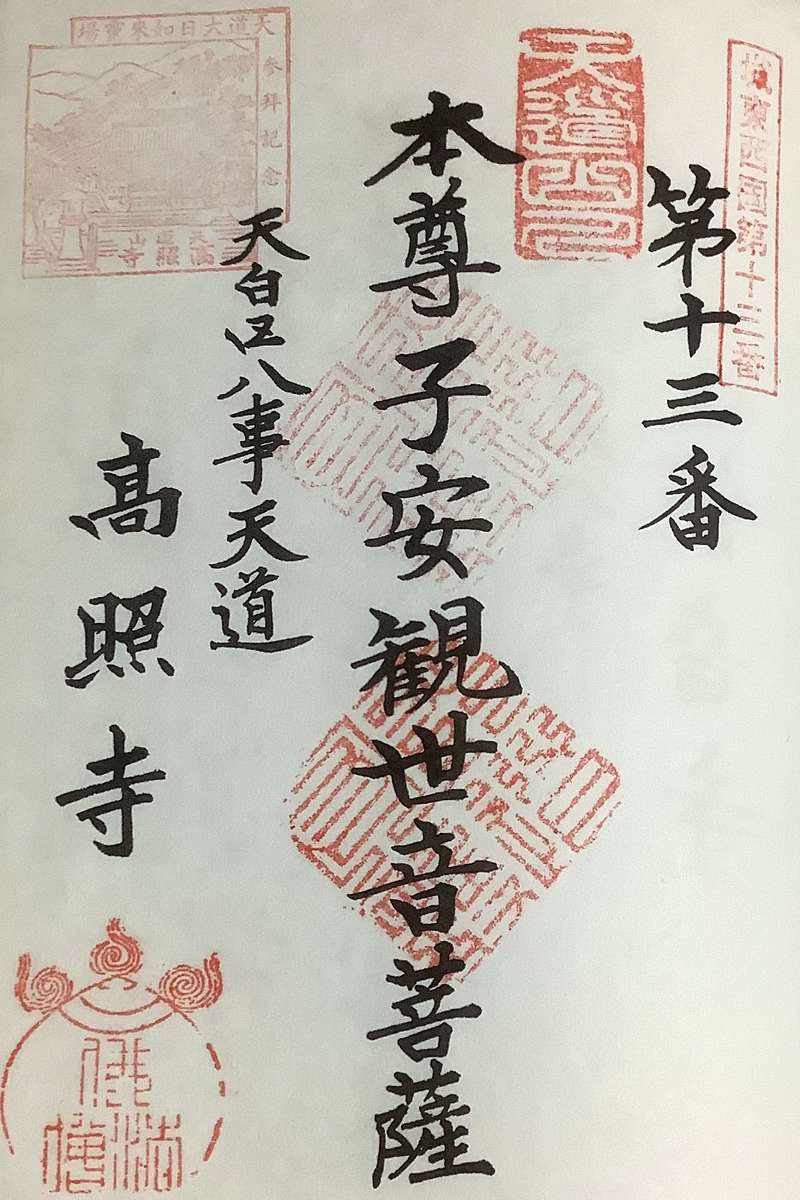 城東西国第十三番
第十三番
天道山
本尊子安観世音菩薩
天白区八事天道
高照寺
天道大日如来霊場
参拝記念
天道山
高照寺
佛法僧